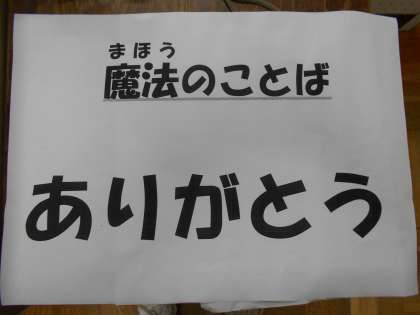 まほう
魔法のことば
ありがとう